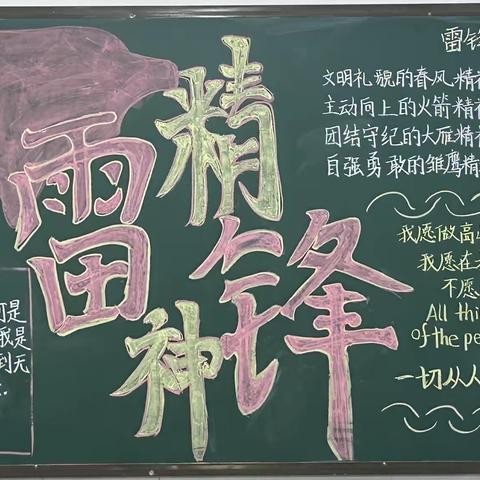 雷锋精神
雷锋
文明礼貌的春风精神
主动向上的火箭精神
团结守纪的大雁精神
自强勇敢的雏鹰精
我愿做高
我愿在
不愿
All thi
of the pe
一切从人
可是
我是
到无